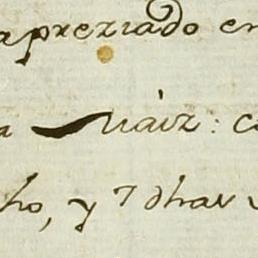 apreziado en
a Juáiz: co
ho, y 7 dhav